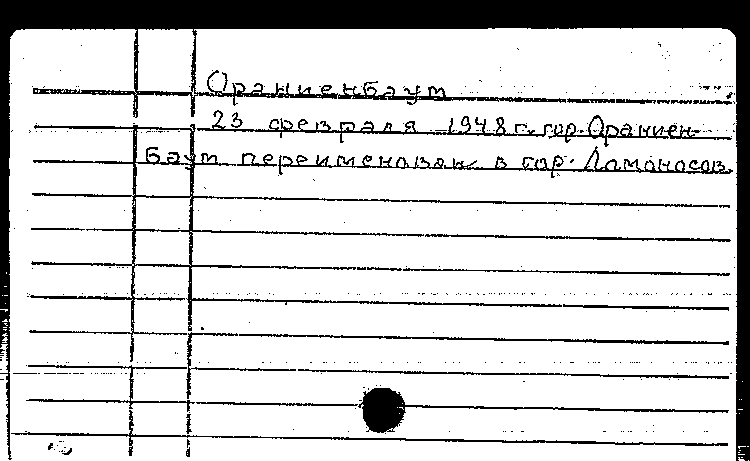 Ораниенбаум
23 февраля 1948 г. гор. Ораниен-
баум переименован в гор. Ломоносов.